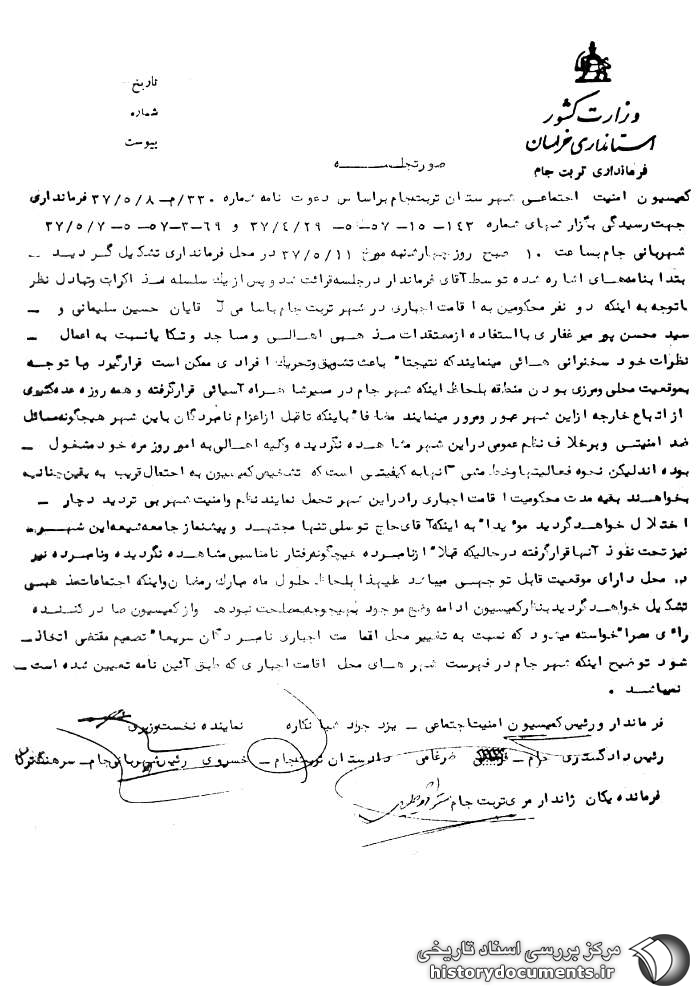 وزارت کشور
استانداری خراسان
فرمانداری تربت جام
تاریخ
شماره
پیوست
صورتجلسه
کمیسیون امنیت اجتماعی شهرستان تربتجام براساس دعوت نامه شماره ۳۳۰/م-۳۷/۵/۸ فرمانداری
جهت رسیدگی بگزارشهای شماره ۱۴۳-۱۵-۵۷-۵ ۳۷/۴/۲۹ و ۶۹-۳-۵۷-۵ ۳۷/۵/۷
شهربانی جام بساعت ۱۰ صبح روز چهارشنبه مورخ ۳۷/۵/۱۱ در محل فرمانداری تشکیل گردید -
بتدا بنامه‌های اشاره شده توسط آقای فرماندار در جلسه قرائت شد و پس از یک سلسله مذاکرات وتبادل نظر
باتوجه به اینکه دو نفر محکومین به اقامت اجباری در شهر تربت جام باسامی آقایان حسین سلیمانی و -
سید محسن پورمیرغفاری با استفاده ازمعتقدات مذهبی اهالی و مساجد و تکایا نسبت به اعمال -
نظرات خود سخنرانی هائی مینمایند که نتیجتا" باعث تشویق وتحریک افرادی ممکن است قرارگیرد وبا توجه
بموقعیت محلی ومرزی بودن منطقه بلحاظ اینکه شهر جام در مسیر شاهراه آسیائی قرارگرفته و همه روزه عده کثیری
از اتباع خارجه ازاین شهر عبور ومرور مینمایند مضافا" باینکه تاقبل ازاعزام نامبردگان باین شهر هیچگونه مسائل
ضد امنیتی وبرخلاف نظم عمومی دراین شهر مشاهده نگردیده وکلیه اهالی به امور روزمره خود مشغول -
بوده اند لیکن نحوه فعالیتها وخط مشی آنها به کیفیتی است که تشخیص کمیسیون به احتمال قریب به یقین چنانچه
بخواهند بقیه مدت محکومیت اقامت اجباری را دراین شهر تحمل نمایند نظم وامنیت شهر بی تردید دچار -
اختلال خواهد گردید مویدا" به اینکه آقای حاج توسلی تنها مجتهد و پیشنماز جامعه شیعه این شهر -
نیز تحت نفوذ آنها قرارگرفته در حالیکه قبلا" ازنامبرده هیچگونه رفتار نامناسبی مشاهده نگردیده ونامبرده نیز
در محل دارای موقعیت قابل توجهی میباشد علیهذا بلحاظ حلول ماه مبارک رمضان واینکه اجتماعات مذهبی
تشکیل خواهد گردید بنظر کمیسیون ادامه وضع موجود بهیچوجه بمصلحت نبوده واز کمیسیون صادر کننده
رای مصرا" خواسته میشود که نسبت به تغییر محل اقامت اجباری نامبردگان سریعا" تصمیم مقتضی اتخاذ
شود توضیح اینکه شهر جام در فهرست شهرهای محل اقامت اجباری که طبق آئین نامه تعیین شده است -
نمیباشد .
فرماندار ورئیس کمیسیون امنیت اجتماعی - یزد جراد شبانکاره نماینده نخست وزیری
رئیس دادگستری جام - ضرغامی دادستان تربتجام - خسروی رئیس شهربانی جام - سرهنگ
فرمانده یکان ژاندارمری تربت جام
مرکز بررسی اسناد تاریخی
historydocuments.ir